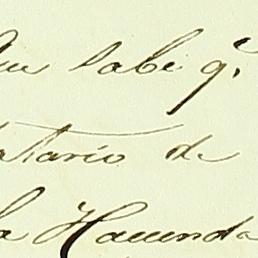 Que sabe q.e
tatario de
la Hacienda